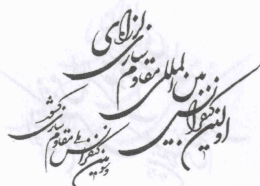 اولین کنفرانس بین المللی مقاوم سازی لرزه‌ای
دومین کنفرانس ملی مقاوم سازی کشور